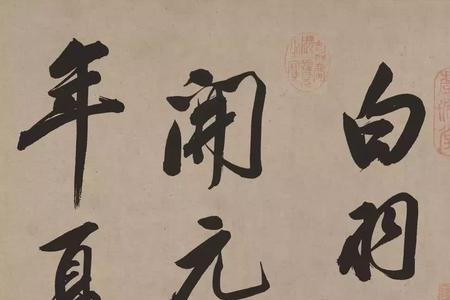 白羽
開元
年夏